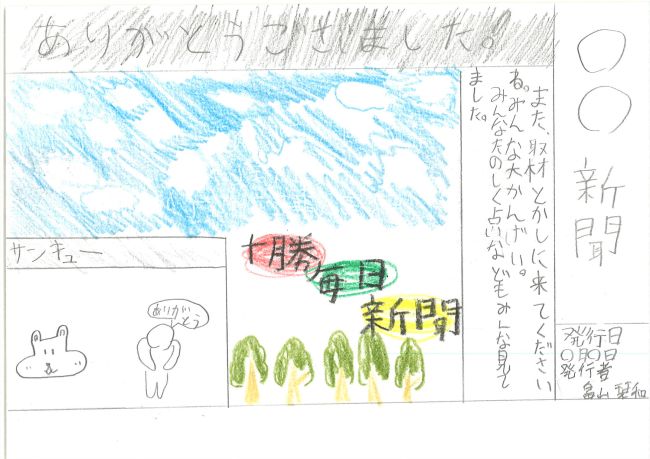 ありがとうございました。
〇〇新聞
発行日
〇月〇日
発行者
畠山
また、取材とかしに来てください
ね。みんな大かんげい。
みんなたのしく占いなどもみんな見て
ました。
十勝
毎日
新聞
サンキュー
ありが
とう